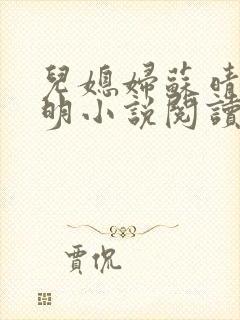 兒媳婦蘇晴
明小說閱讀
賈侃